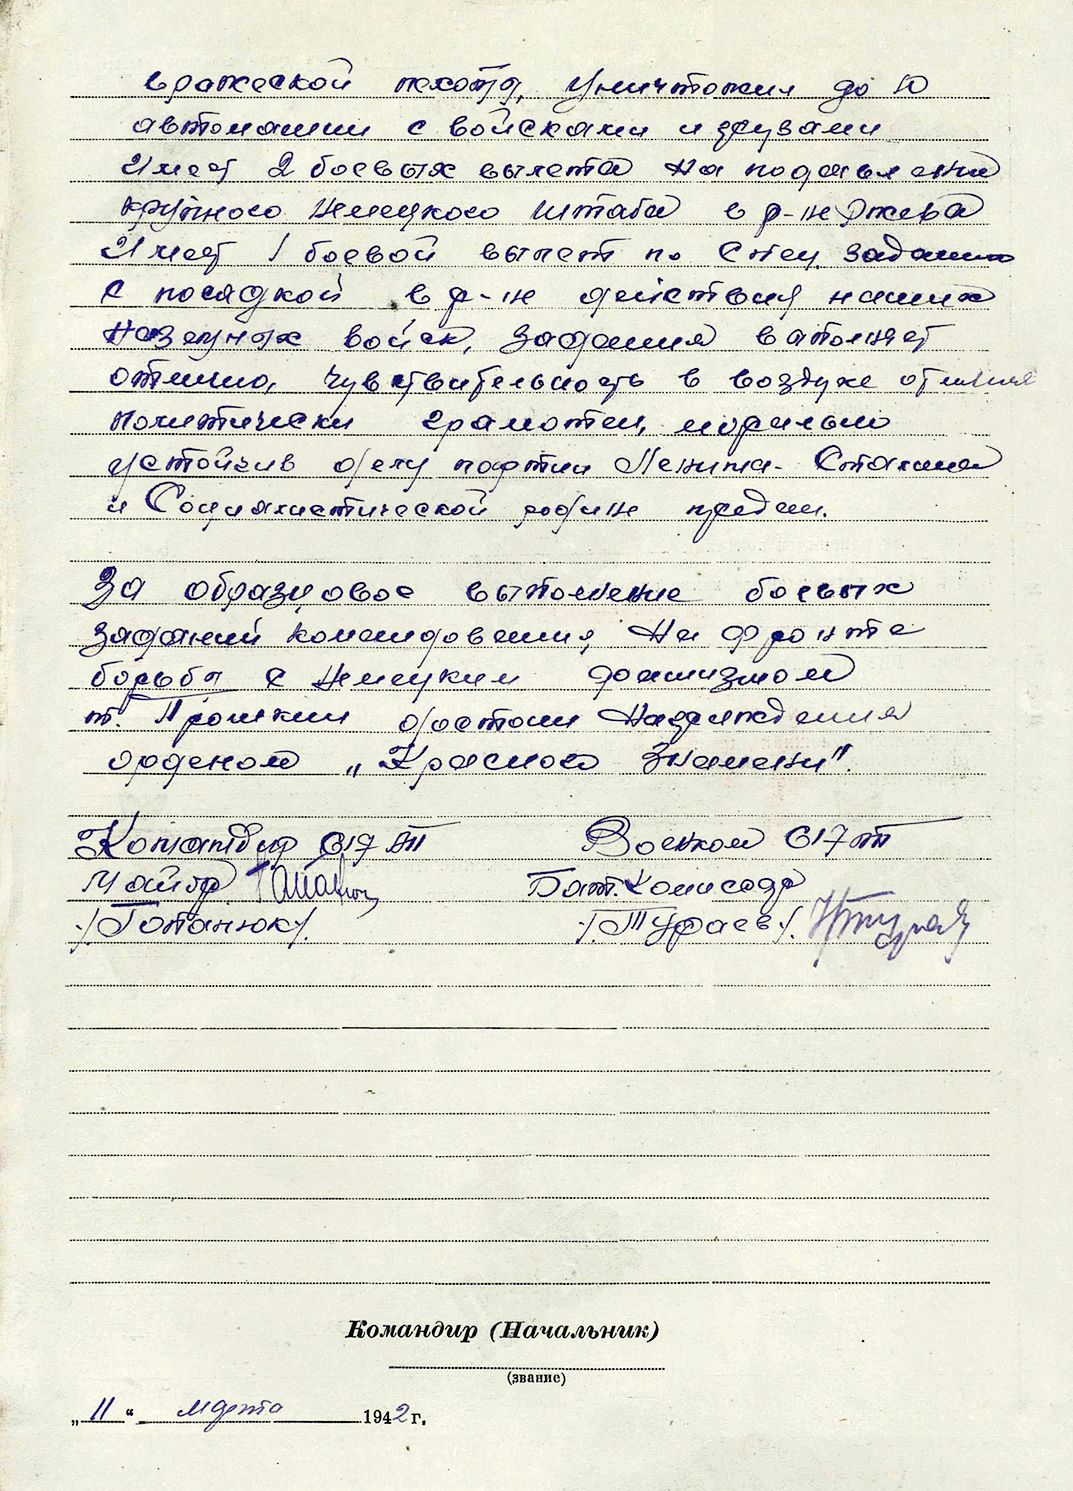 вражеской пехоты, уничтожил до 10
автомашин с войсками и грузами
Имеет 2 боевых вылета на подавление
крупного немецкого штаба в р-не Ржева
Имеет 1 боевой вылет по спец. заданию
с посадкой в р-не действия наших
наземных войск, задания выполняет
отлично, чувствительность в воздухе отличная
политически грамотен, морально
устойчив делу партии Ленина-Сталина
и Социалистической родине предан.
За образцовое выполнение боевых
заданий командования, на фронте
борьбы с немецким фашизмом
т. достоин награждения
орденом „Красного Знамени".
Командир 617 АП Военком 617 АП
Майор Бат. Комиссар
/Топанюк/. /Тураев/.
Командир (Начальник)
(звание)
„11“ марта 1942 г.